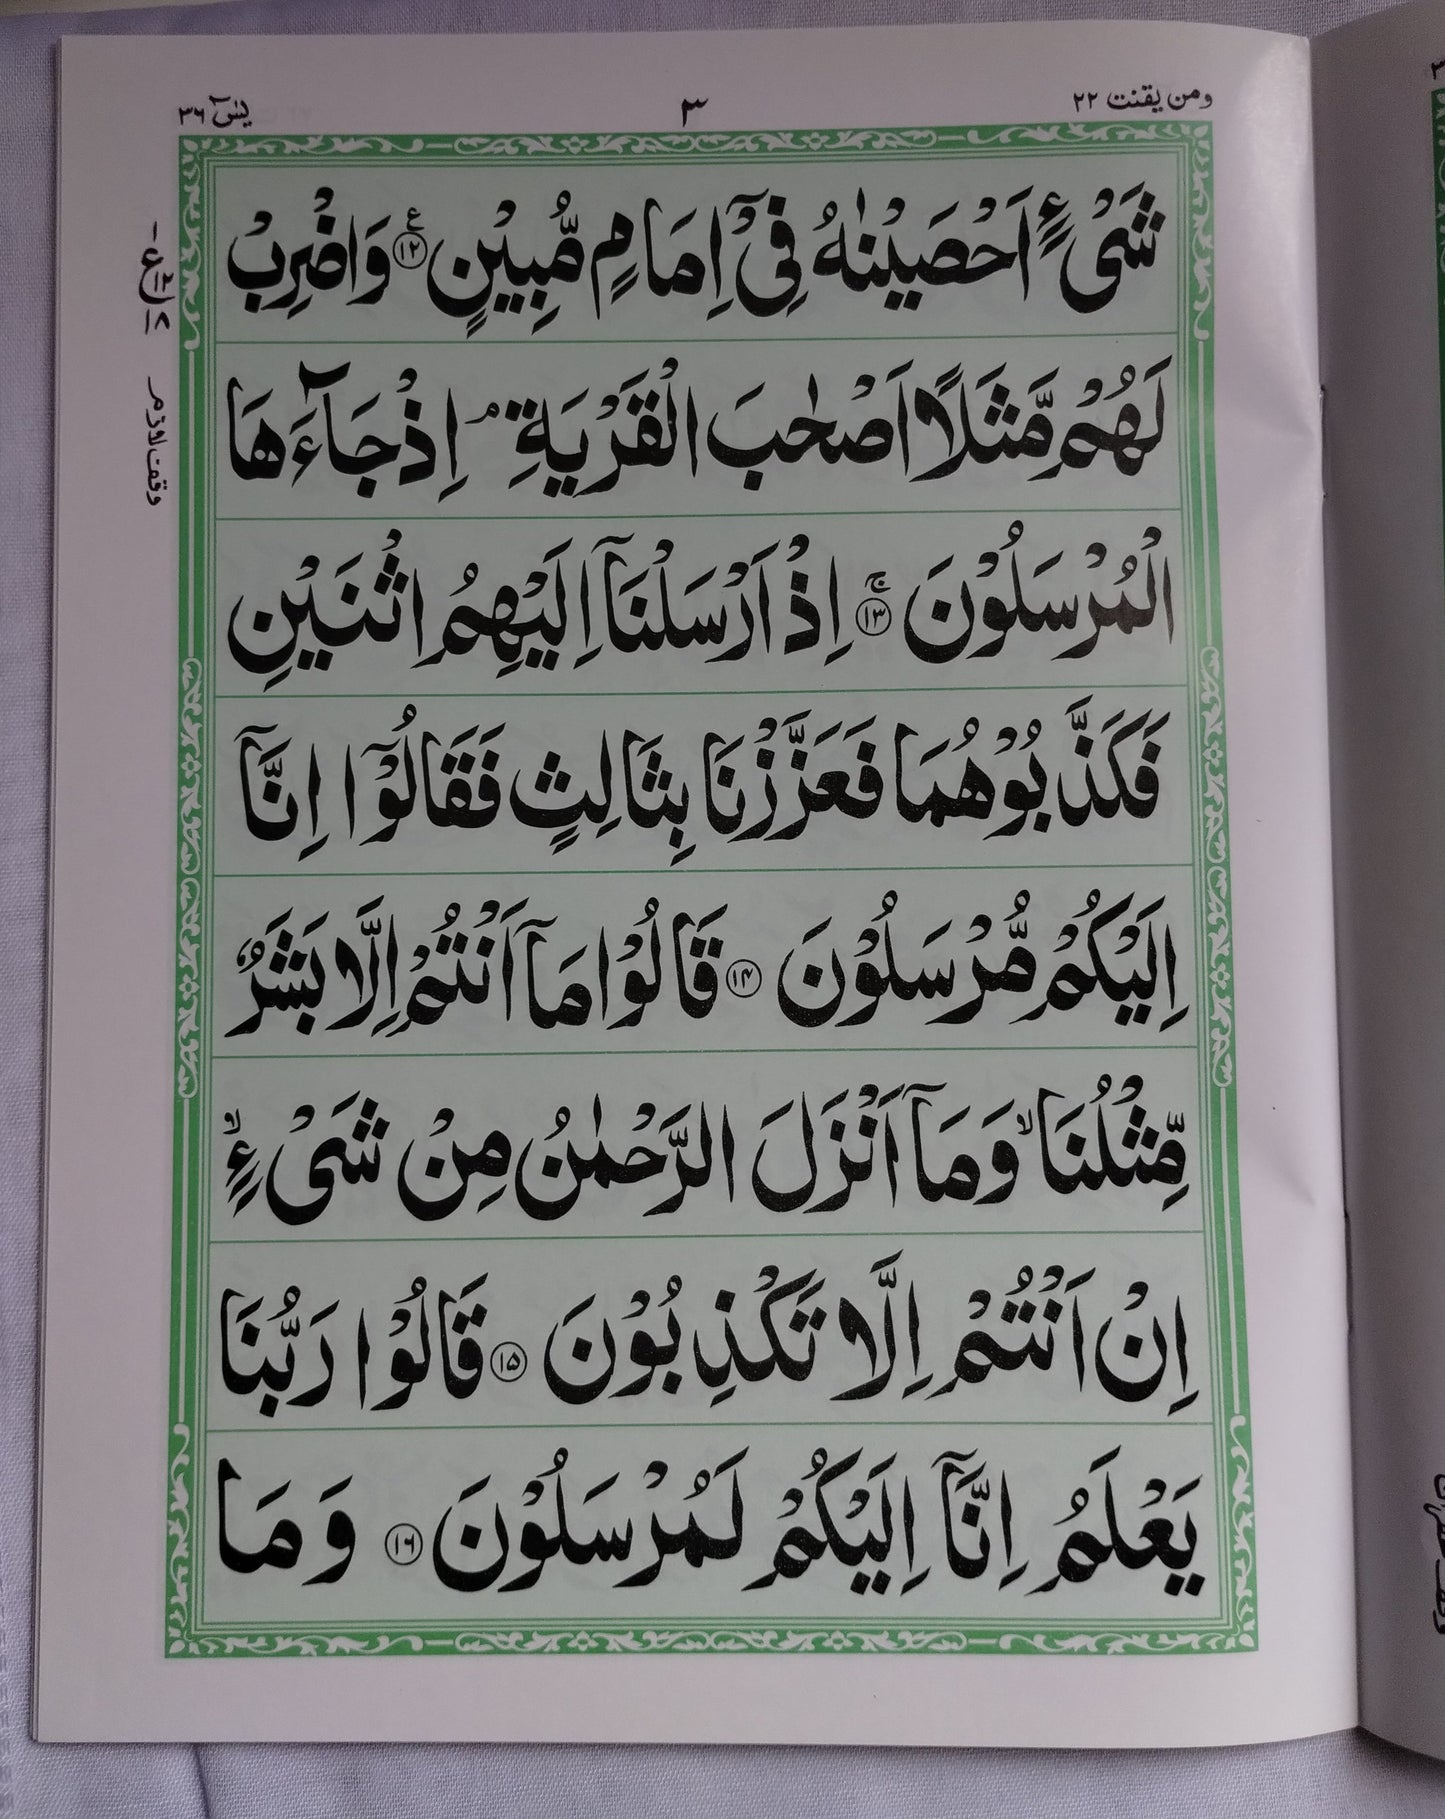 ومن يقنت ٢٢
٣
يٰسٓ ٣٦
شَیْءٍ اَحْصَیْنٰهُ فِیْۤ اِمَامٍ مُّبِیْنٍ ﴿۱۲﴾ ع وَاضْرِبْ
لَهُمْ مَّثَلًا اَصْحٰبَ الْقَرْیَةِ ۘ اِذْ جَآءَهَا
الْمُرْسَلُوْنَ ﴿۱۳﴾ ۚ اِذْ اَرْسَلْنَاۤ اِلَیْهِمُ اثْنَیْنِ
فَكَذَّبُوْهُمَا فَعَزَّزْنَا بِثَالِثٍ فَقَالُوْۤا اِنَّاۤ
اِلَیْكُمْ مُّرْسَلُوْنَ ﴿۱۴﴾ قَالُوْا مَاۤ اَنْتُمْ اِلَّا بَشَرٌ
مِّثْلُنَا ۙ وَمَاۤ اَنْزَلَ الرَّحْمٰنُ مِنْ شَیْءٍ ۙ
اِنْ اَنْتُمْ اِلَّا تَكْذِبُوْنَ ﴿۱۵﴾ قَالُوْا رَبُّنَا
یَعْلَمُ اِنَّاۤ اِلَیْكُمْ لَمُرْسَلُوْنَ ﴿۱۶﴾ وَمَا
وقف لازم